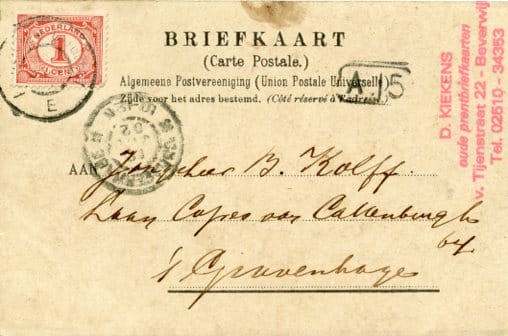 NEDERLAND
1
CENT
BRIEFKAART
(Carte Postale.)
Algemeene Postvereeniging (Union Postale Universelle)
Zijde voor het adres bestemd. (Côté réservé à l'adresse)
A 35
D. KIEKENS
oude prentbriefkaarten
v. Tijenstraat 22 - Beverwijk
Tel. 02510 - 34353
E
AAN Jonkheer B. Kolff
Laan Copes van Cattenburgh
's Gravenhage